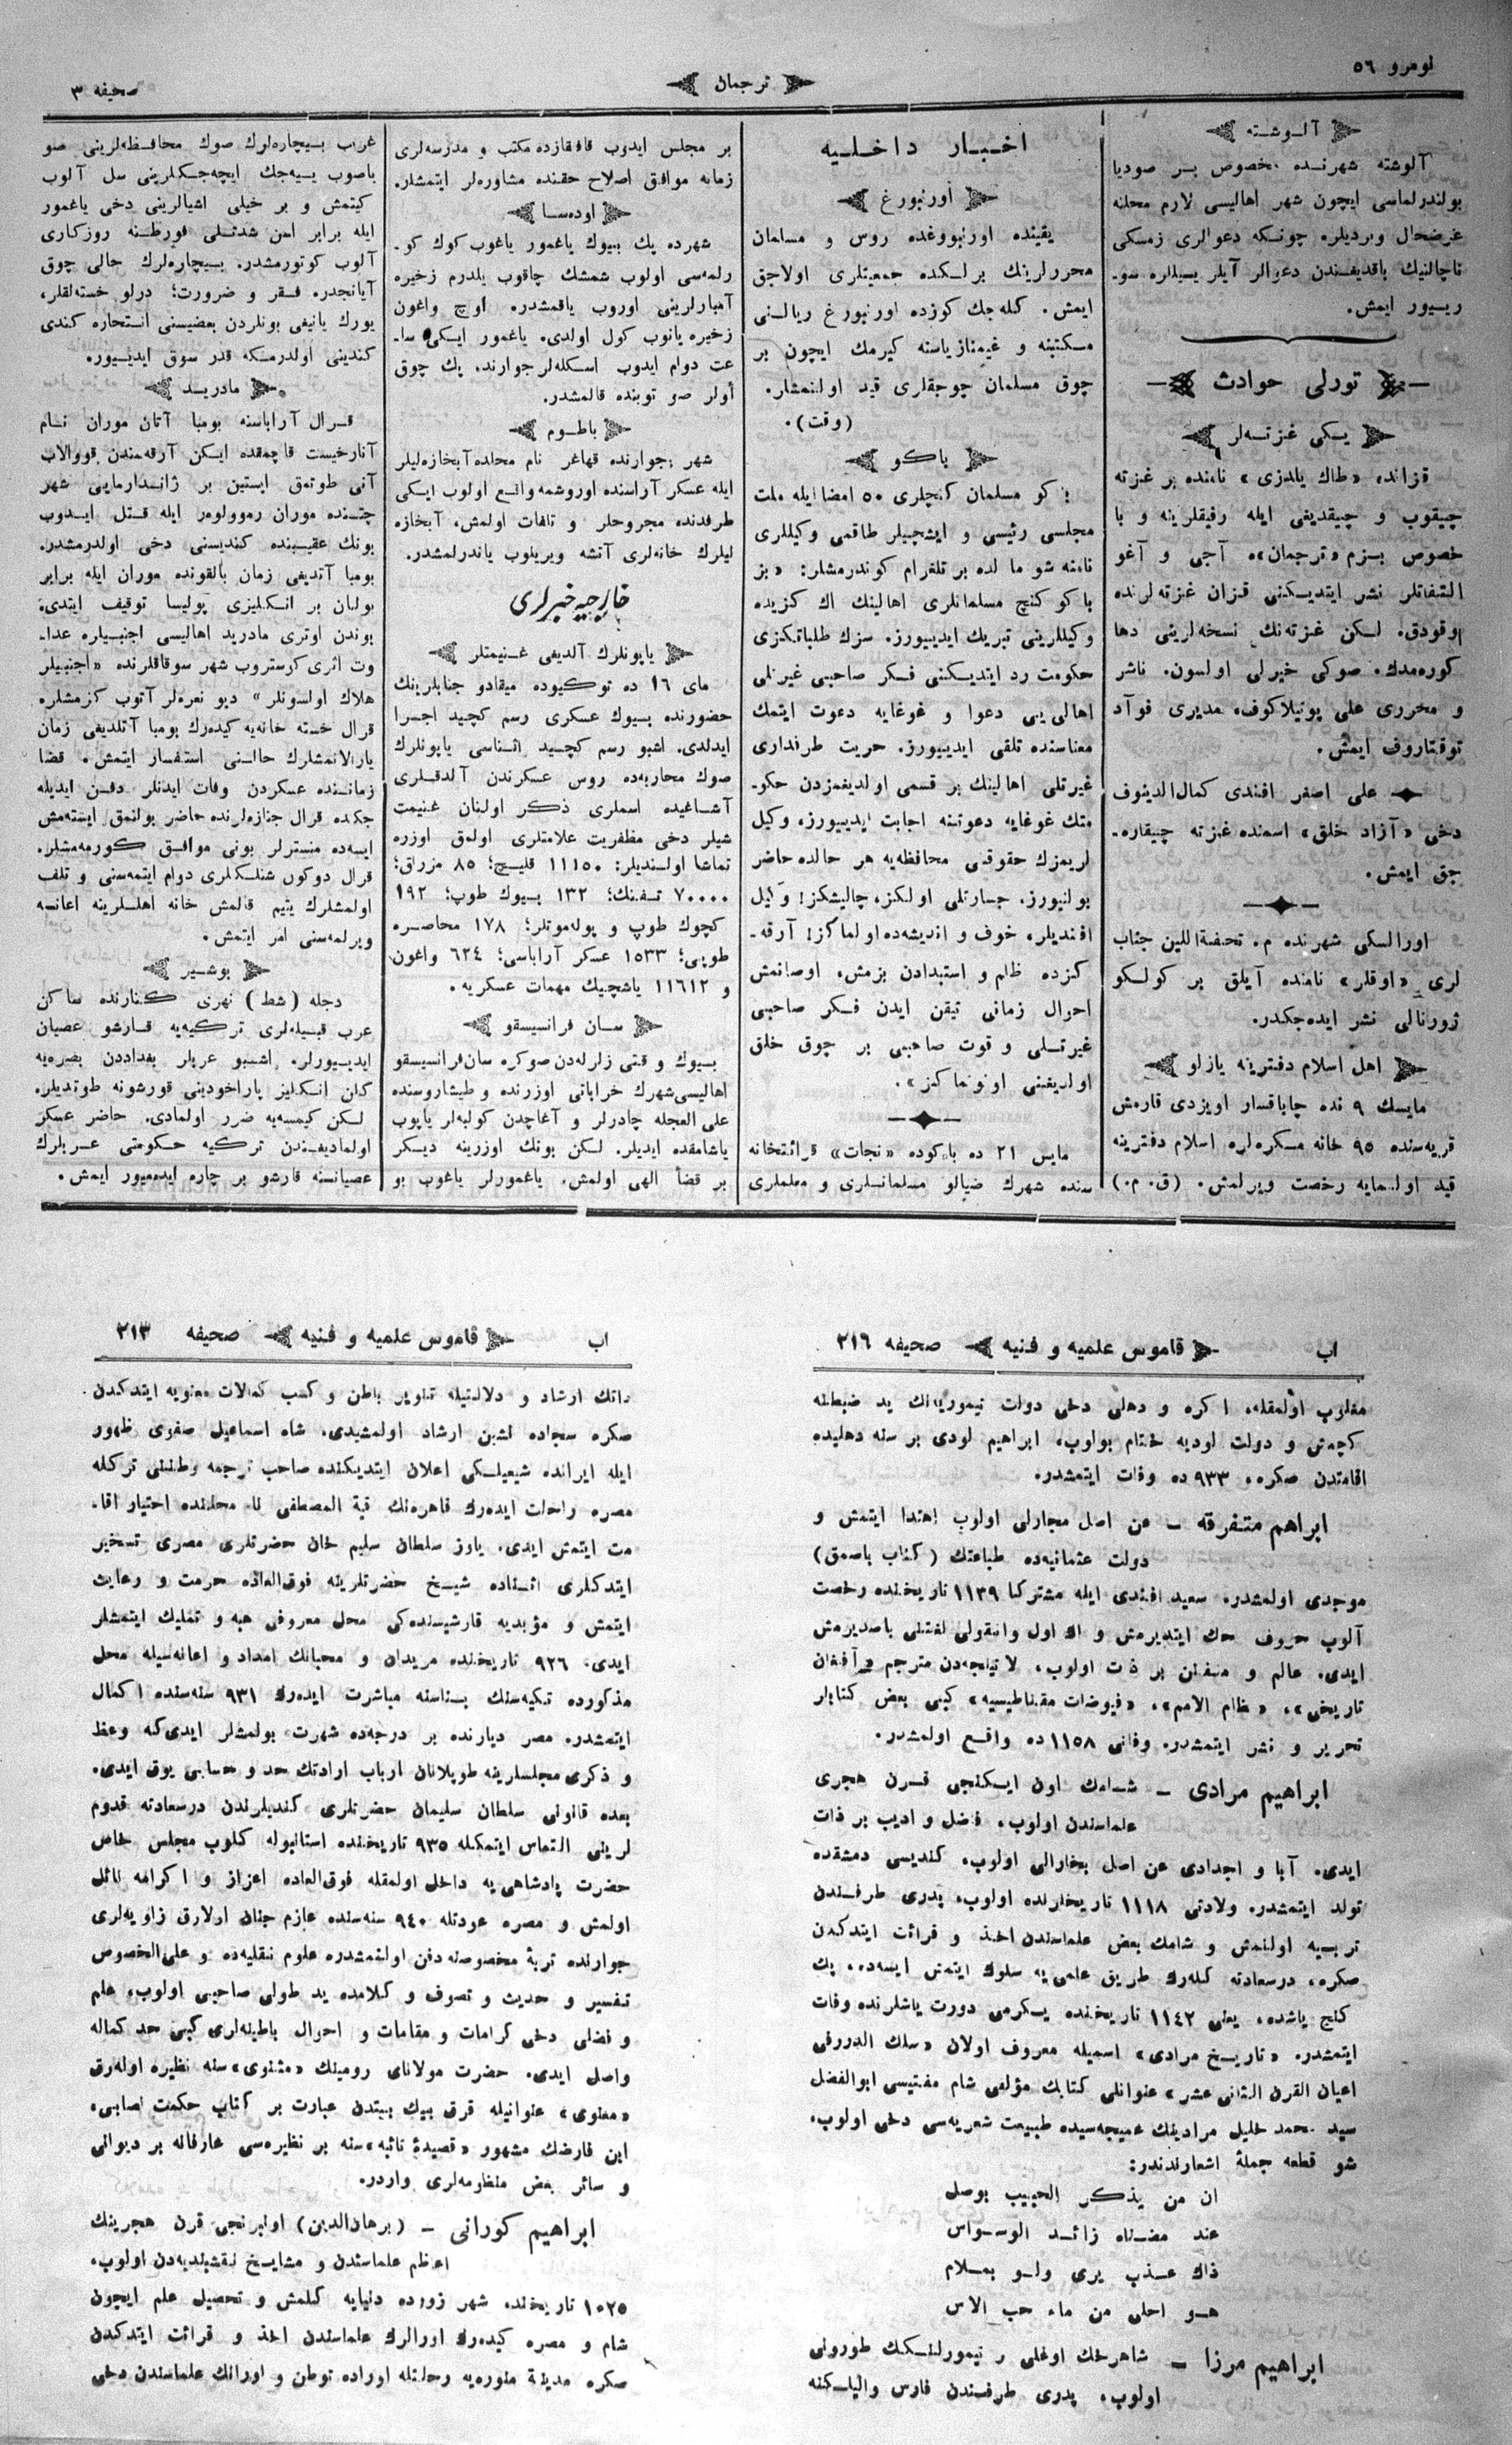 نومرو ٥٦
ترجمان
صحيفه ٣
آلوشته
آلوشته شهرنده مخصوص بر صوديا
بولندرلماسی ايچون شهر اهاليسی لازم محلنه
عرضحال ويرديلر. چونكه دعوالری زمسكی
ناچالنيك باقديغندن دعوالر آيلر ييللره سو-
ريبور ايمش.
تورلی حوادث
يكی غزتهلر
قزانده «طاك يلدزی» نامنده بر غزته
چيقوب و چيقديغی ايله رفيقلرينه و با
خصوص بزم «ترجمان»ه آجی و آغو
التفاتلر نشر ايتديكنی قزان غزتهلرنده
اوقودق. لكن غزتهنك نسخهلرينی دها
كورهمدك. صوكی خيرلی اولسون. ناشر
و محرری علی پوتيلاكوف، مديری فوآد
توقتاروف ايمش.
علی اصغر افندی كمال‌الدينوف
دخی «آزاد خلق» اسمنده غزته چيقاره-
جق ايمش.
اورالسكی شهرنده م. تحفةاللين جناب
لری «اوقلر» نامنده آيلق بر كولكو
ژورنالی نشر ايدهجكدر.
اهل اسلام دفترينه يازلو
مايسك ٩ نده چاباقسار اويزدی قارمش
قريهسنده ٩٥ خانه مكرهلره اسلام دفترينه
قيد اولنمايه رخصت ويرلمش. (ق. م.)
اخبار داخليه
اورنبورغ
يقينده اورنبورغده روس و مسلمان
محررلرينك برلكده جمعيتلری اولاجق
ايمش. كلهجك كوزده اورنبورغ ريالنی
مكتبنه و غيمنازياسنه كيرمك ايچون بر
چوق مسلمان چوجقلری قيد اولنمشلر.
(وقت).
باكو
باكو مسلمان كنچلری ٥٠ امضا ايله ملت
مجلسی رئيسی و ايشچيلر طاقمی وكيللری
نامنه شو مآلده بر تلغرام كوندرمشلر: «بز
باكو كنچ مسلمانلری اهالينك اك كزيده
وكيللرينی تبريك ايديبورز. سزك طلباتكزی
حكومت رد ايتديكنی فكر صاحبی غيرتلی
اهالی‌يی دعوا و غوغايه دعوت ايتمك
معناسنده تلقی ايديبورز. حريت طرفداری
غيرتلی اهالينك بر قسمی اولديغمزدن حكو-
متك غوغايه دعوتنه اجابت ايديبورز. وكيل
لريمزك حقوقنی محافظه‌يه هر حالده حاضر
بولنيورز. جسارتلی اولكز، چاليشكز! وكيل
افنديلر، خوف و انديشه‌ده اولماكز! آرقه-
كزده ظلم و استبدادن بزمش، اوصانمش
احوال زمانی تيقن ايدن فكر صاحبی
غيرتلی و قوت صاحبی بر چوق خلق
اولديغنی اونوتماكز».
مايس ٢١ ده باكوده «نجات» قرائتخانه
سنده شهرك ضيالو مسلمانلری و معلملری
بر مجلس ايدوب قافقازده مكتب و مدرسه‌لری
زمانه موافق اصلاح حقنده مشاوره‌لر ايتمشلر.
اودهسا
شهرده پك بيوك ياغمور ياغوب كوك كو-
رلمه‌سی اولوب شمشك چاقوب يلدرم زخيره
آمبارلرينی اوروب ياقمشدر. اوچ واغون
زخيره يانوب كول اولدی. ياغمور ايكی سا-
عت دوام ايدوب اسكله‌لر جوارنده پك چوق
أولر صو توبنده قالمشدر.
باطوم
شهر جوارنده قهاغر نام محلده آبخازه‌ليلر
ايله عسكر آراسنده اوروشمه واقع اولوب ايكی
طرفدنده مجروحلر و تلفات اولمش، آبخازه
ليلرك خانه‌لری آتشه ويريلوب ياندرلمشدر.
خارجيه خبرلری
ياپونلرك آلديغی غنيمتلر
مای ١٦ ده توكيوده ميقادو جنابلرينك
حضورنده بيوك عسكری رسم كچيد اجرا
ايدلدی. اشبو رسم كچيد اثناسی ياپونلرك
صوك محاربه‌ده روس عسكرندن آلدقلری
آشاغيده اسملری ذكر اولنان غنيمت
شيلر دخی مظفريت علامتلری اولمق اوزره
تماشا اولنديلر: ١١١٥٠ قليچ؛ ٨٥ مزراق؛
٧٠٠٠٠ تفنك؛ ١٣٢ بيوك طوپ؛ ١٩٢
كچوك طوپ و پوله‌موتلر؛ ١٧٨ محاصره
طوپی؛ ١٥٣٣ عسكر آراباسی؛ ٦٢٤ واغون
و ١١٦١٢ ياشچيك مهمات عسكريه.
سان فرانسيسقو
بيوك و قتی زلزله‌دن صوكره سان‌فرانسيسقو
اهاليسی شهرك خراباتی اوزرنده و طيشاروسنده
علی العجله چادرلر و آغاچدن كولبه‌لر ياپوب
ياشامقده ايديلر. لكن بونك اوزرينه ديكر
بر قضأ الهی اولمش. ياغمورلر ياغوب بو
غريب بيچاره‌لرك صوك محافظه‌لرينی صو
باصوب ييه‌جك ايچه‌جكلرينی سل آلوب
كيتمش و بر خيلی اشيالرينی دخی ياغمور
ايله برابر اسن شدتلی فورطنه روزكاری
آلوب كوتورمشدر. بيچاره‌لرك حالی چوق
آيانجدر. فقر و ضرورت؛ درلو خسته‌لقلر،
يورك يانيغی بونلردن بعضيسنی انتحاره كندی
كندينی اولدرمكه قدر سوق ايديبور.
مادريد
قرال آراباسنه بومبا آتان موران نام
آنارخيست قاچمقده ايكن آرقه‌سندن قووالاب
آنی طوتمق ايستين بر ژاندارمايی شهر
چتنده موران رهوولوهر ايله قتل ايدوب
بونك عقبنده كنديسنی دخی اولدرمشدر.
بومبا آتديغی زمان بالقونده موران ايله برابر
بولنان بر انكليزی پوليسا توقيف ايتدی.
بوندن اوتری مادريد اهاليسی اجنبيلره عدا-
وت اثری كوستروب شهر سوقاقلرنده «اجنبيلر
هلاك اولسونلر» ديو نعره‌لر آتوب كزمشلر.
قرال خسته خانه‌يه كيده‌رك بومبا آتلديغی زمان
يارالانمشلرك حالنی استفسار ايتمش. قضا
زماننده عسكردن وفات ايدنلر دفن ايديله
جكده قرال جنازه‌لرنده حاضر بولنمق ايسته‌مش
ايسه‌ده منسترلر بونی موافق كورمه‌مشلر.
قرال دوكون شنلكلری دوام ايتمه‌سنی و تلف
اولمشلرك يتيم قالمش خانه اهللرينه اعانه
ويرلمه‌سنی امر ايتمش.
بوشير
دجله (شط) نهری كنارنده ساكن
عرب قبيله‌لری تركيه‌يه قارشو عصيان
ايديبورلر. اشبو عربلر بغداددن بصره‌يه
كلن انكليز پاراخودينی قورشونه طوتديلر.
لكن كيمسه‌يه ضرر اولمادی. حاضر عسكر
اولماديغندن تركيه حكومتی عربلرك
عصيانسنه قارشو بر چاره ايده‌ميور ايمش.
اب قاموس علميه و فنيه صحيفه ٢١٦
مغلوب اولمقله، اكره و دهلی دخی دولت تيموريه‌نك يد ضبطنه
كچمش و دولت لوديه ختام بولوب، ابراهيم لودی بر سنه دهليده
اقامتدن صكره، ٩٣٣ ده وفات ايتمشدر.
ابراهم متفرقه ــ عن اصل مجارلی اولوب اهتدا ايتمش و
دولت عثمانيه‌ده طباعتك (كتاب باصمق)
موجدی اولمشدر. سعيد افندی ايله مشتركا ١١٣٩ تاريخنده رخصت
آلوب حروف حك ايتديرمش و اك اول وانقولی لغتنی باصديرمش
ايدی. عالم و متفنن بر ذات اولوب، لاتينجه‌دن مترجم «آفغان
تاريخی»، «نظام الامم»، «فيوضات مقناطيسيه» كبی بعض كتابلر
تحرير و نشر ايتمشدر. وفاتی ١١٥٨ ده واقع اولمشدر.
ابراهيم مرادی ــ شامك اون ايكنجی قرن هجری
علماسندن اولوب، فاضل و اديب بر ذات
ايدی. آبا و اجدادی عن اصل بخارالی اولوب، كنديسی دمشقده
تولد ايتمشدر. ولادتی ١١١٨ تاريخلرنده اولوب، پدری طرفندن
تربيه اولنمش و شامك بعض علماسندن اخذ و قرائت ايتدكدن
صكره، درسعادته كله‌رك طريق علمی‌يه سلوك ايتمش ايسه‌ده، پك
كنج ياشده، يعنی ١١٤٢ تاريخنده يكرمی دورت ياشلرنده وفات
ايتمشدر. «تاريخ مرادی» اسميله معروف اولان «سلك الدررفی
اعيان القرن الثانی عشر» عنوانلی كتابك مؤلفی شام مفتيسی ابوالفضل
سيد محمد خليل مرادينك عميجه‌سيده طبيعت شعريه‌سی دخی اولوب،
شو قطعه جملهٔ اشعارندندر:
ان من يذكر الحبيب بوصل
عند مضناه زائد الوسواس
ذاك عذب يری ولو بملام
هو احلی من ماء حب الاس
ابراهيم مرزا ــ شاهرخك اوغلی و تيمورلنكك طورونی
اولوب، پدری طرفندن فارس واليلكنه
اب قاموس علميه و فنيه صحيفه ٢١٣
راتك ارشاد و دلالتيله تنوير باطن و كسب كمالات معنويه ايتدكدن
صكره سجاده نشين ارشاد اولمشيدی. شاه اسماعيل صفوی ظهور
ايله ايرانده شيعيلكی اعلان ايتديكنده صاحب ترجمه وطننی تركله
مصره راحلت ايده‌رك قاهره‌نك قبة المصطفی نام محلنده اختيار اقا-
مت ايتمش ايدی. ياوز سلطان سليم خان حضرتلری مصری تسخير
ايتدكلری اثناده شيخ حضرتلرينه فوق‌العاده حرمت و رعايت
ايتمش و مؤيديه قارشيسنده‌كی محل معروفی هبه و تمليك ايتمشلر
ايدی. ٩٢٦ تاريخنده مريدان و محبانك امداد و اعانه‌سيله محل
مذكورده تكيه‌سنك بناسنه مباشرت ايده‌رك ٩٣١ سنه‌سنده اكمال
ايتمشدر. مصر ديارنده بر درجه‌ده شهرت بولمشلر ايدی‌كه وعظ
و ذكری مجلسلرينه طوپلانان ارباب ارادتك حد و حسابی يوق ايدی.
بعده قانونی سلطان سليمان حضرتلری كنديلرندن درسعادته قدوم
لرينی التماس ايتمكله ٩٣٥ تاريخنده استانبوله كلوب مجلس خاص
حضرت پادشاهی‌يه داخل اولمقله فوق‌العاده اعزاز و اكرامه نائل
اولمش و مصره عودتله ٩٤٠ سنه‌سنده عازم جنان اولارق زاويه‌لری
جوارنده تربهٔ مخصوصه‌ده دفن اولنمشدره علوم نقليه‌ده و علی‌الخصوص
تفسير و حديث و تصوف و كلامده يد طولی صاحبی اولوب، علم
و فضلی دخی كرامات و مقامات و احوال باطنه‌لری كبی حد كماله
واصل ايدی. حضرت مولانای رومينك «مثنوی»سنه نظيره اوله‌رق
«معنوی» عنوانيله قرق بيك بيتدن عبارت بر كتاب حكمت نصابی،
ابن فارضك مشهور «قصيدهٔ تائيه»سنه بر نظيره‌سی عارفانه بر ديوانی
و سائر بعض منظومه‌لری واردر.
ابراهيم كورانی ــ (برهان‌الدين) اونبرنجی قرن هجرينك
اعظم علماسندن و مشايخ نقشبنديه‌دن اولوب،
١٠٢٥ تاريخنده شهر زورده دنيايه كلمش و تحصيل علم ايچون
شام و مصره كيده‌رك اورالرك علماسندن اخذ و قرائت ايتدكدن
صكره مدينهٔ منوره‌يه رحلتله اوراده توطن و اورانك علماسندن دخی